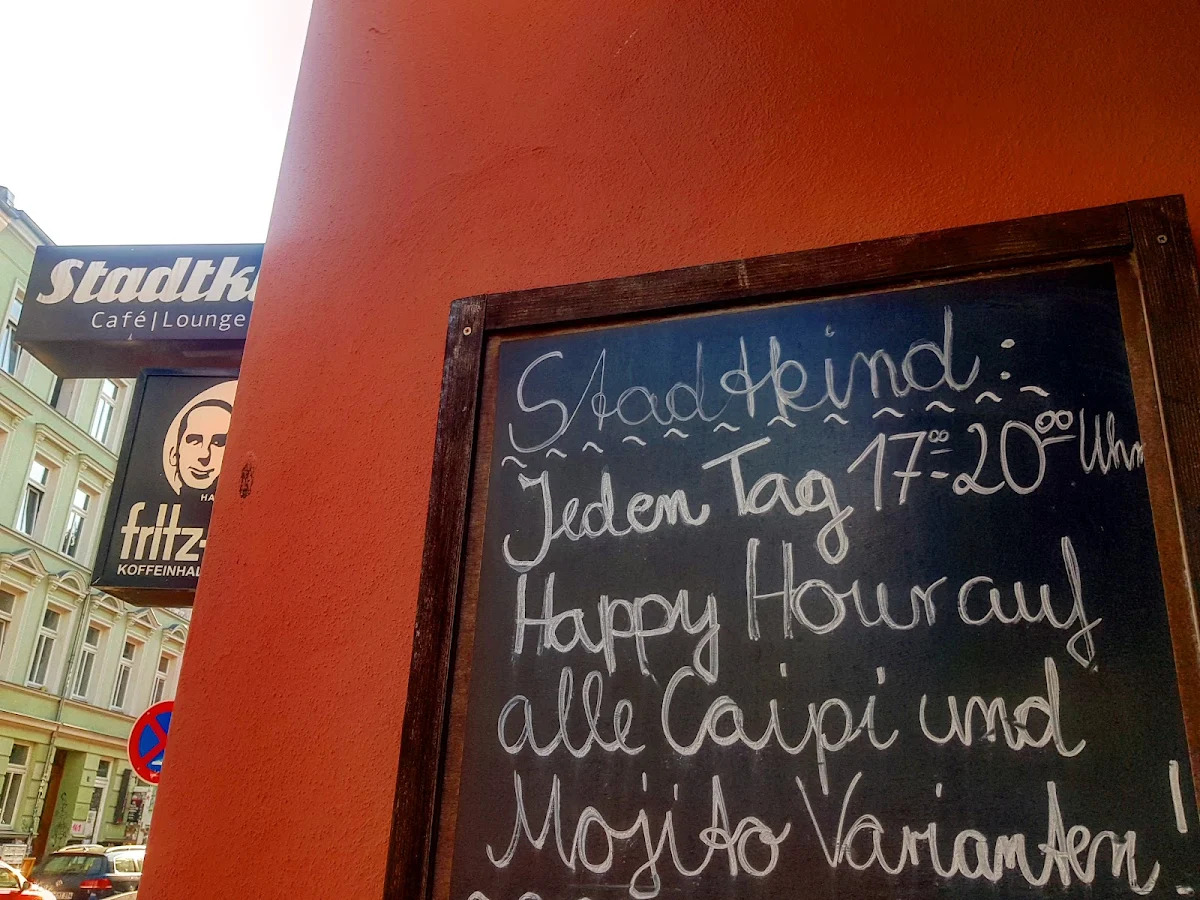 Stadtk
Café|Lounge
fritz-
KOFFEINHAL
Stadtkind:
Jeden Tag 17⁰⁰-20⁰⁰ Uhr
Happy Hour auf
alle Caipi und
Mojito Varianten!